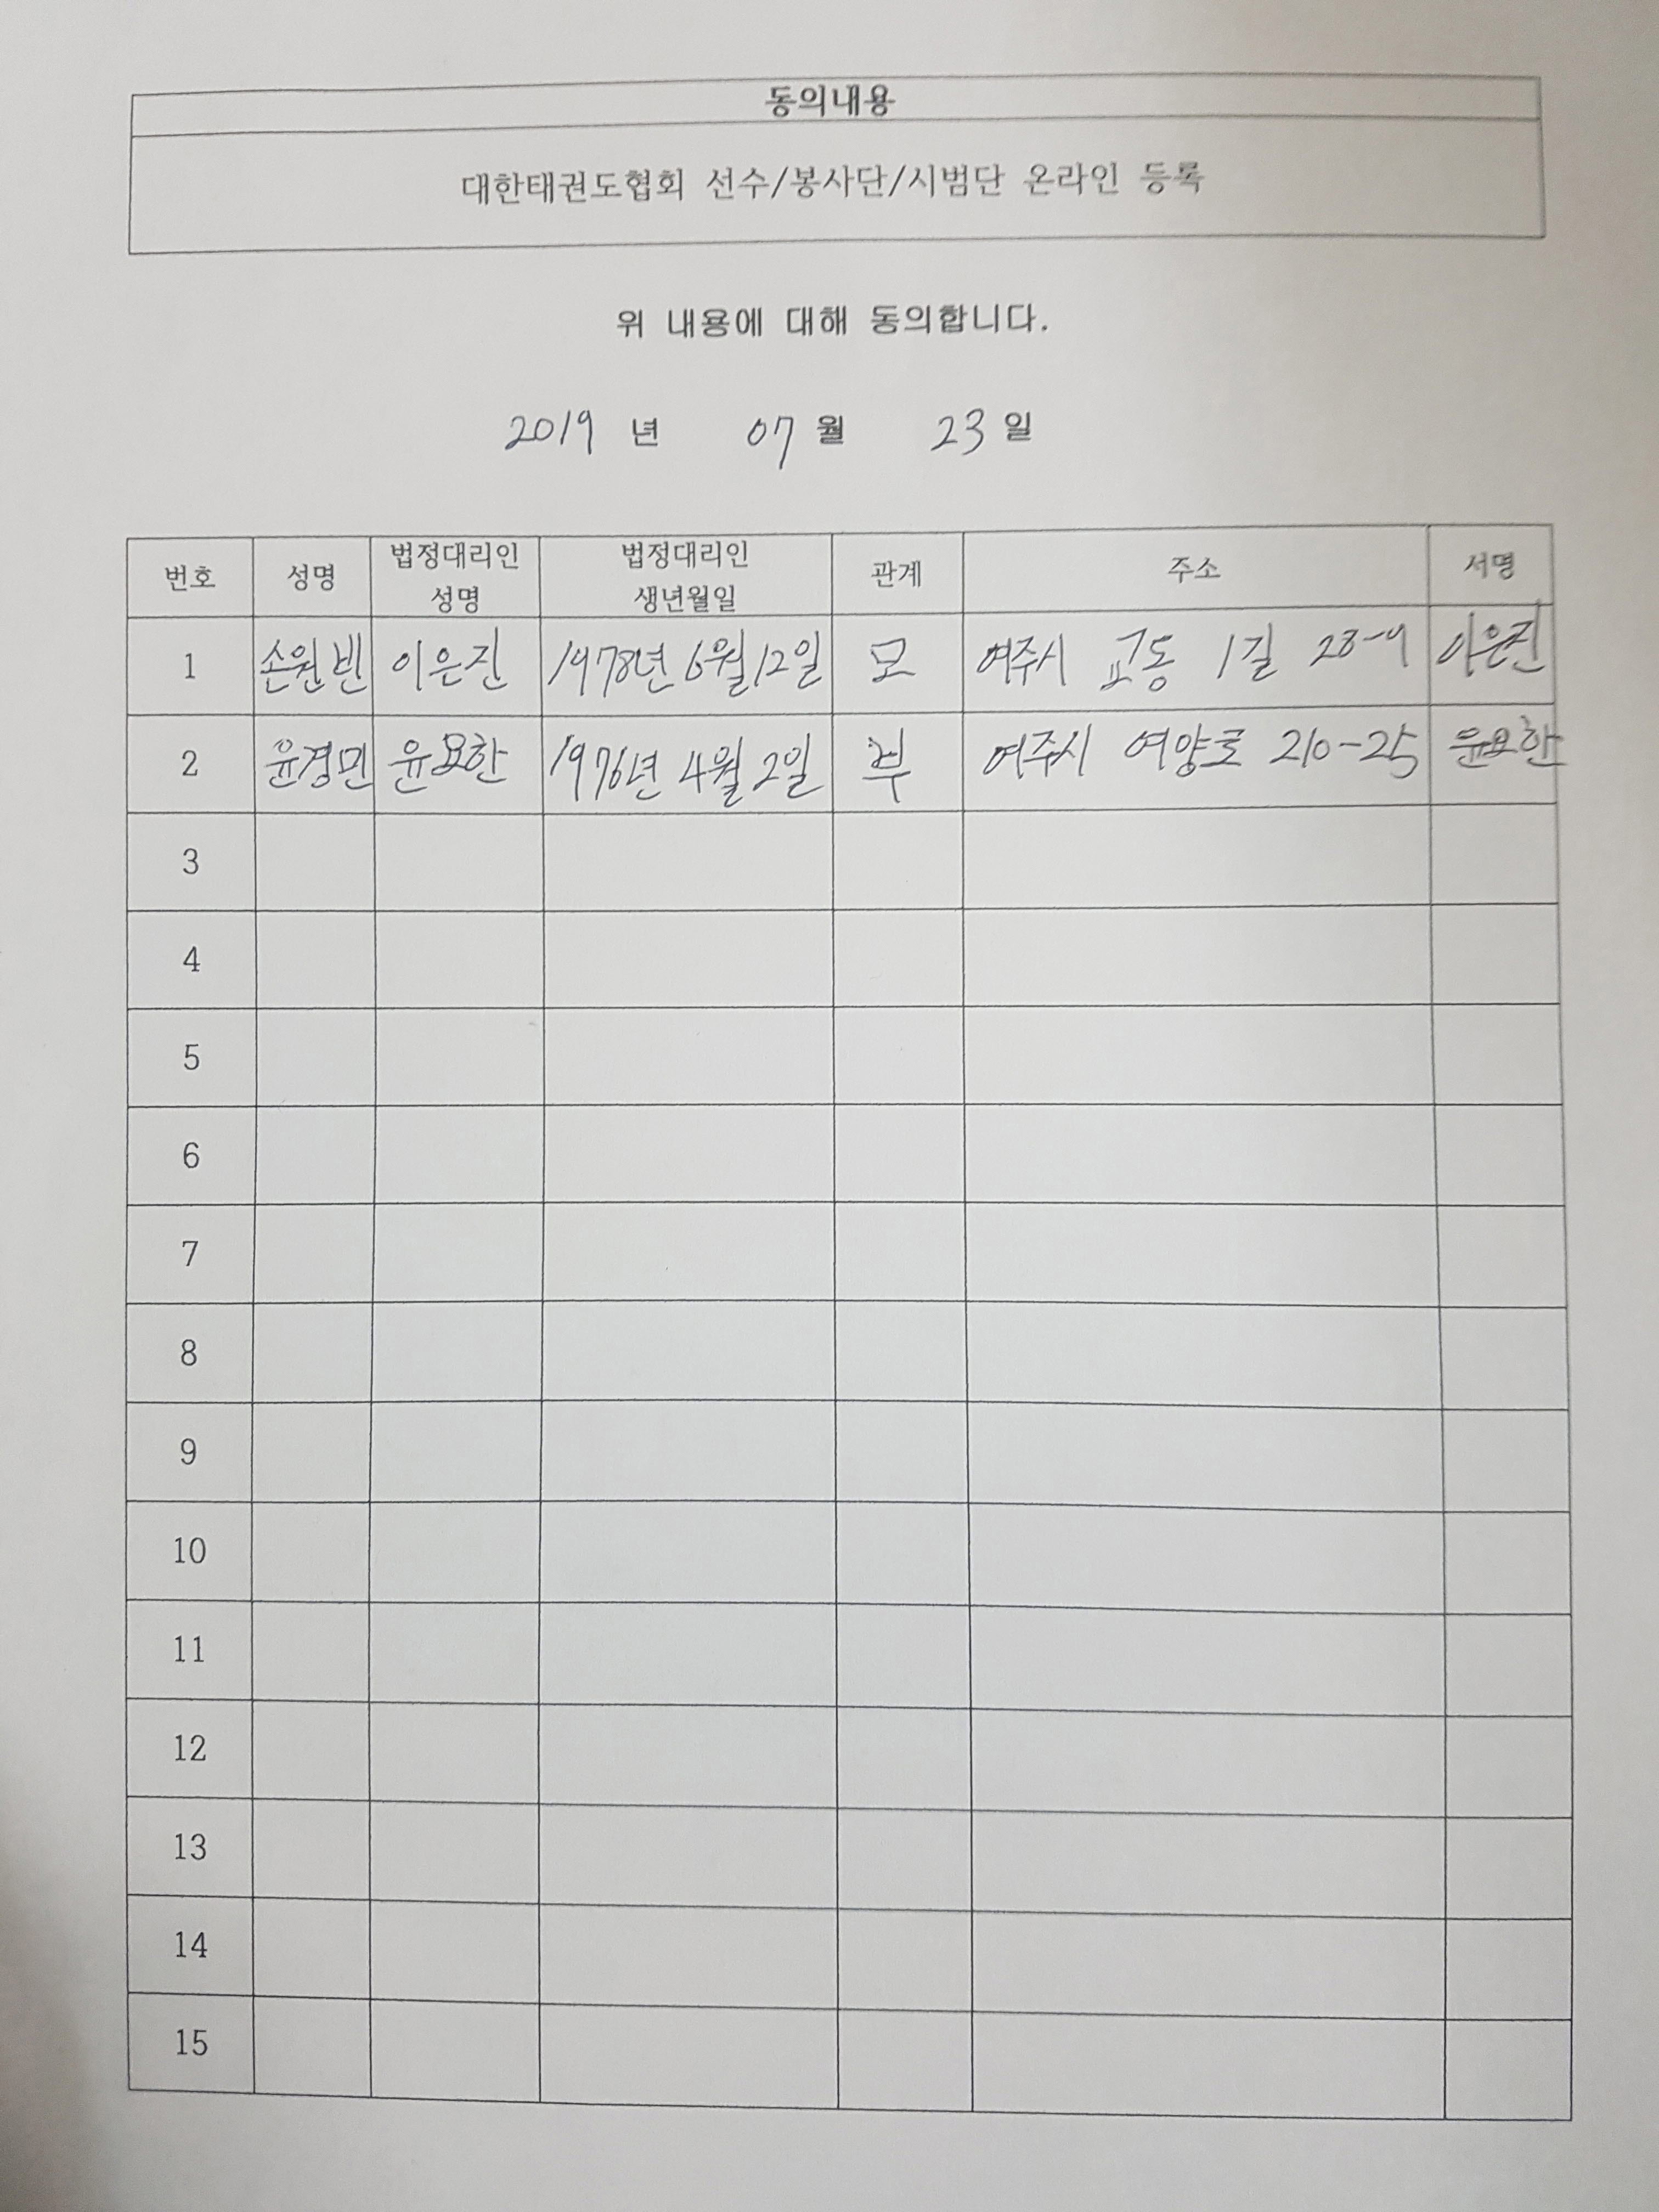 동의내용
대한태권도협회 선수/봉사단/시범단 온라인 등록
위 내용에 대해 동의합니다.
2019 년 07 월 23 일
번호 성명 법정대리인 성명 법정대리인 생년월일 관계 주소 서명
1 손원빈 이은진 1978년 6월 12일 모 여주시 교동 1길 28-9 이은진
2 윤경민 윤요한 1976년 4월 2일 부 여주시 여양로 210-25 윤요한
3
4
5
6
7
8
9
10
11
12
13
14
15